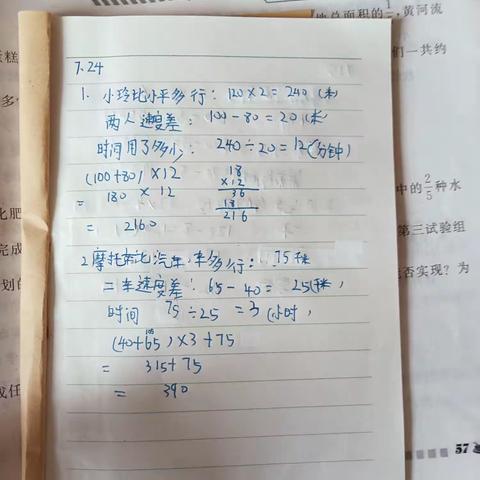 地总面积的1/,黄河流
蛋糕
们一共约
多
7.24
1. 小玲比小平多行: 120×2=240(米)
两人速度差: 100-80=20(米)
时间用了多少: 240÷20=12(分钟)
(100+80)×12
= 180 × 12
= 2160
18
×12
36
18
216
中的2/5种水
化肥
第三试验组
完成
是否实现?为
划的
2.摩托车比汽车多行: 75千米
二车速度差: 65-40=25(千米)
时间 75÷25=3(小时)
(40+65)×3+75
105
= 315+75
= 390
成任
57